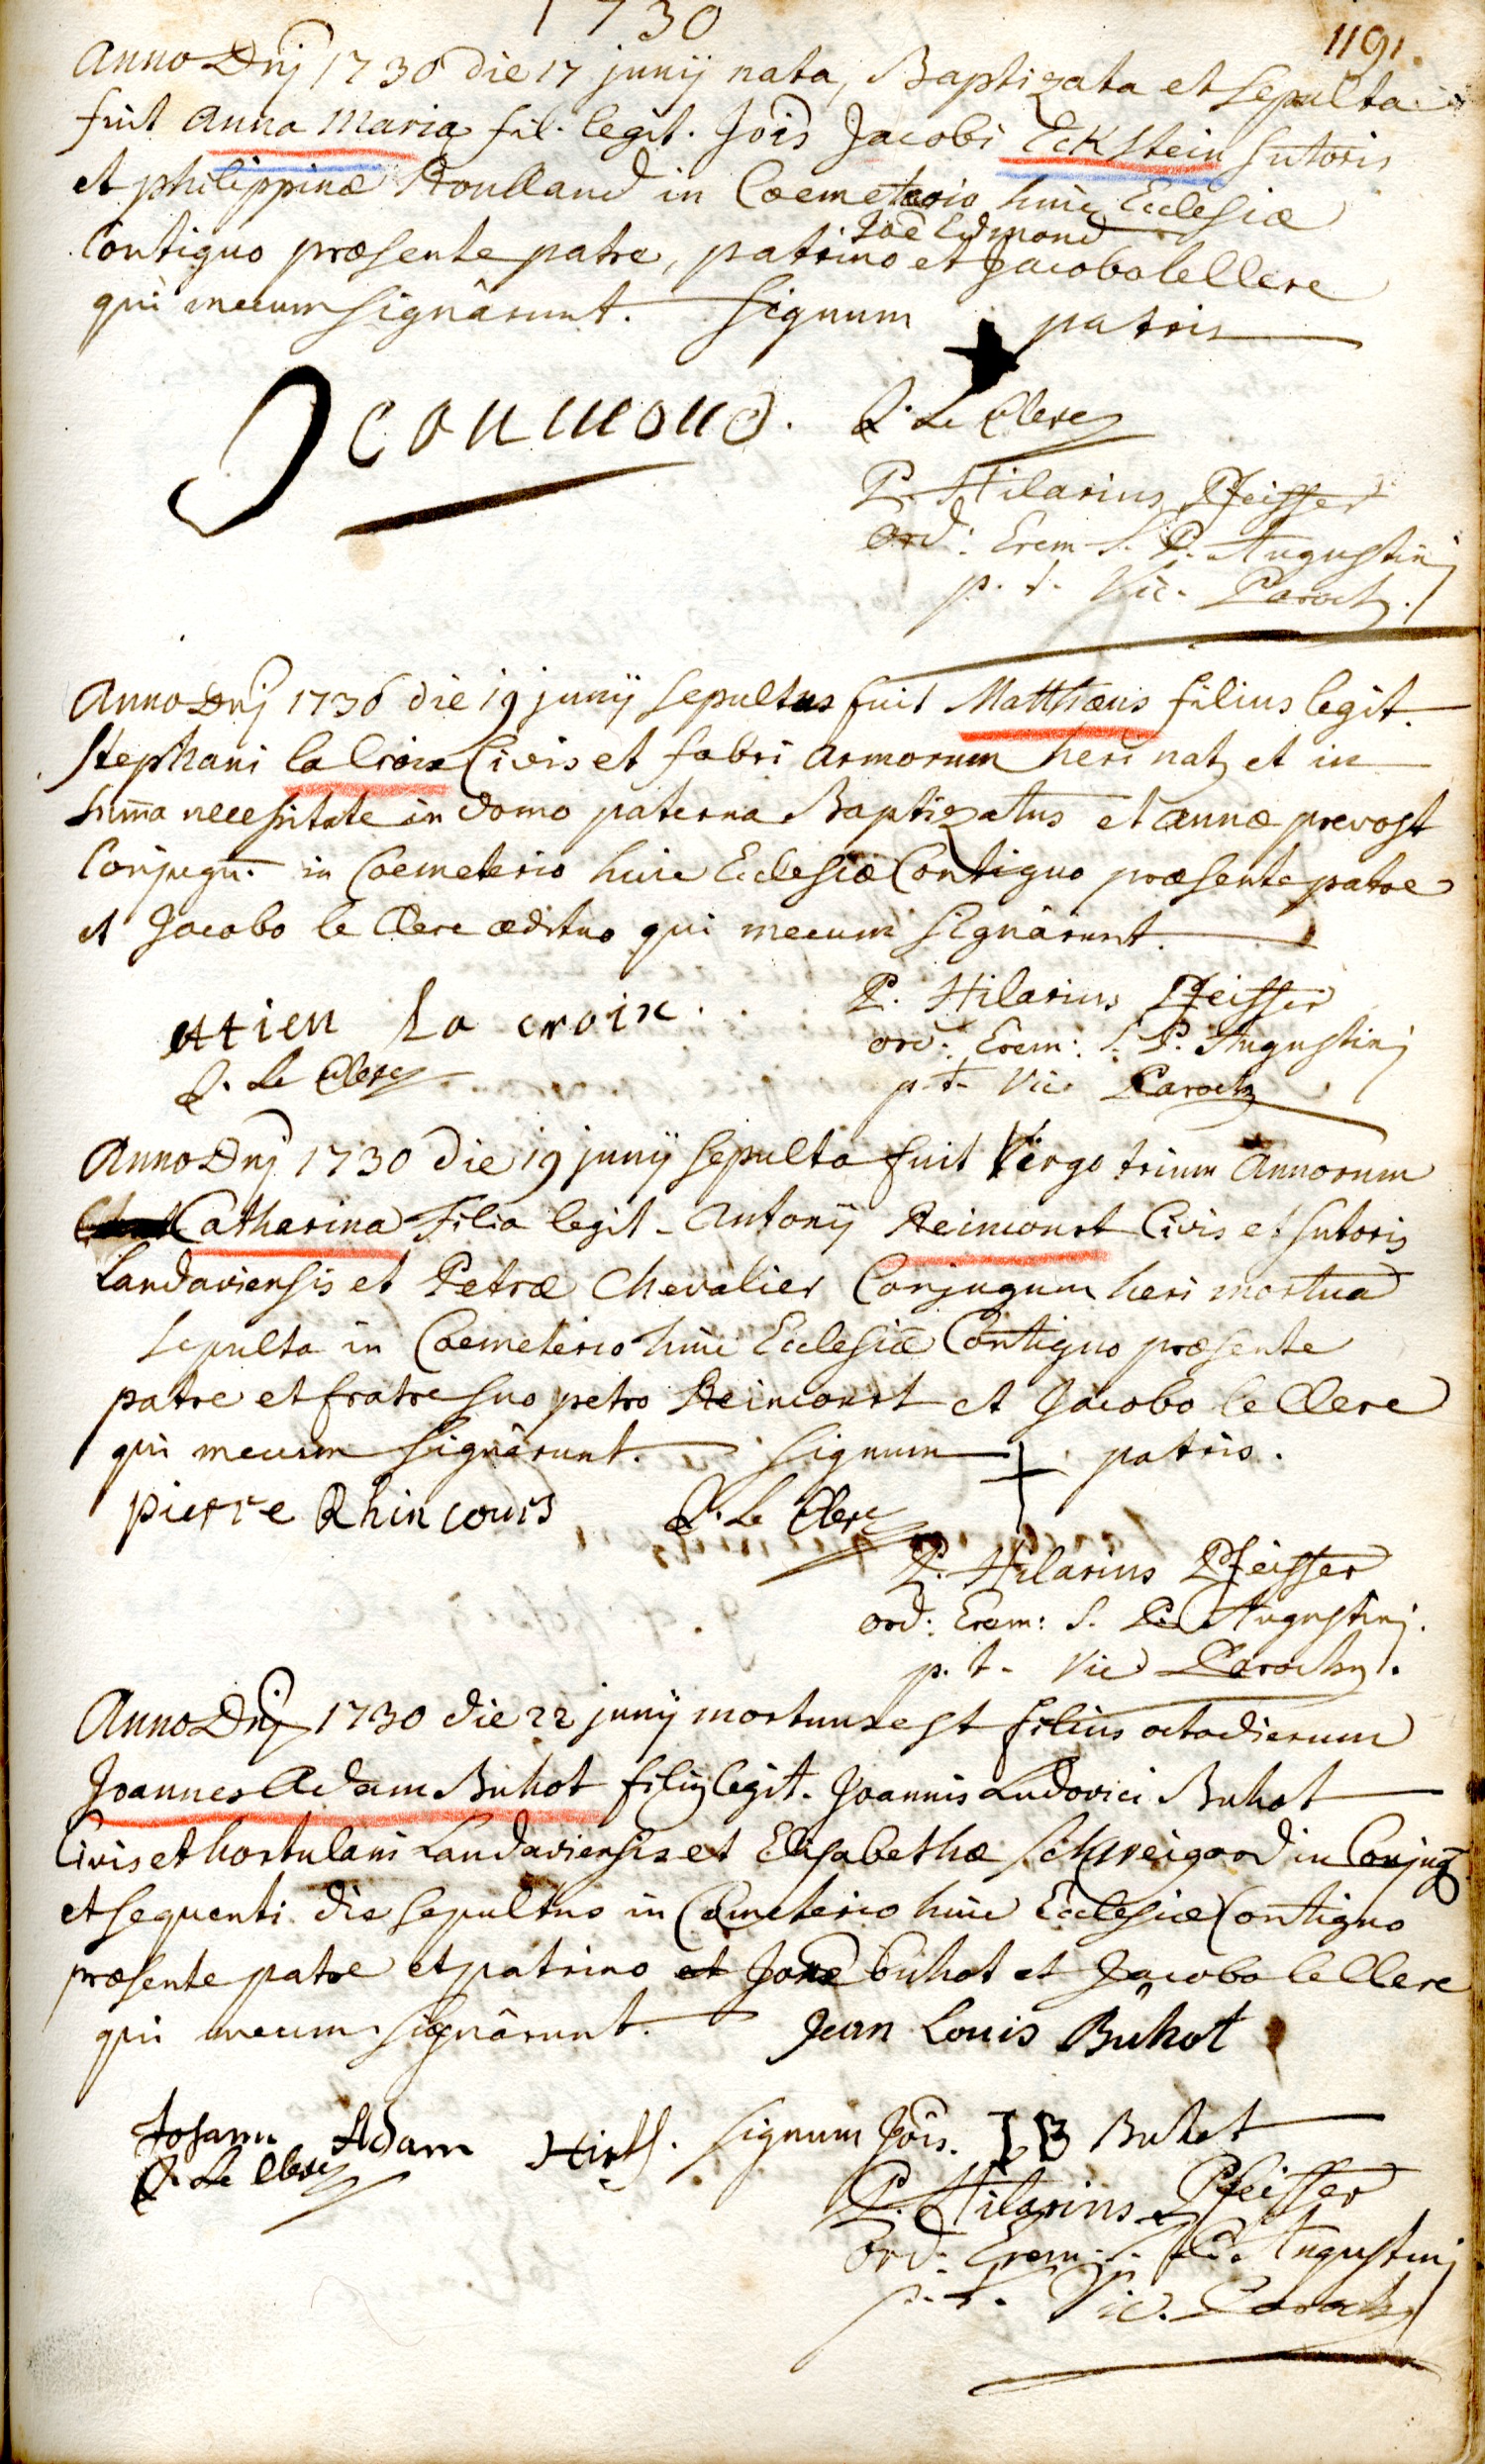 1730
1191.
Anno Dnj 1730 die 17 junij nata, Baptizata et sepulta
fuit Anna Maria fil. legit. Jois Jacobi Eckstein sutoris
et philippinæ Roulland in Coemeterio huic Ecclesiæ
Contiguo præsente patre, patrino Joe Edmond et Jacobo le Clere
qui mecum signârunt. Signum patris
J Conmond.
J. Le Clerc
P. Hilarius Pfeiffer
Ord: Erem. S. P. Augustinj
p. t. Vic. Paroch.
Anno Dnj 1730 die 19 junij sepultus fuit Matthæus filius legit.
Stephani la Croix Civis et fabri armorum heri natq et in
summa necessitate in domo paterna Baptizatus et annæ prevost
Conjugu. in Coemeterio huic Ecclesiæ Contiguo præsente patre
et Jacobo le Clere ædituo qui mecum signârunt.
ettien la croix.
J. Le Clerc
P. Hilarius Pfeiffer
ord: Erem: S. P. Augustinj
p. t. Vic Paroch
Anno Dnj 1730 die 19 junij sepulta fuit Virgo trium annorum
Catharina Filia legit. Antonij Reincourt Civis et sutoris
Landaviensis et Petræ Chevalier Conjugum heri mortua
sepulta in Coemeterio huic Ecclesiæ Contiguo præsente
patre et fratre suo petro Reincourt et Jacobo le Clere
qui mecum signârunt. Signum + patris.
pierre Rhincours J. Le Clerc
P. Hilarius Pfeiffer
ord: Erem: S. P. Augustinj.
p. t. Vic Paroch.
Anno Dnj 1730 die 22 junij mortuus est filius octo dierum
Joannes Adam Buhot filiq legit. Joannis Ludovici Buhot
Civis et hortulani Landaviensis et Elisabethæ Schweigood in Conjug
et sequenti die sepultus in Coemeterio huic Ecclesiæ Contiguo
præsente patre et patrino et Joñe buhot et Jacobo le Clere
qui mecum signârunt. Jean Louis Buhot
Johann Adam Hirth. Signum Jois. IB Buhot
J. Le Clerc
P. Hilarius Pfeiffer
Ord. Erem. S. P. Augustinj
p. t. Vic. Paroch